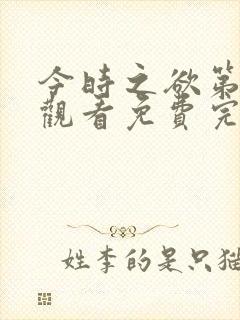 今時之欲第
觀看免費完
姓李的是只猫